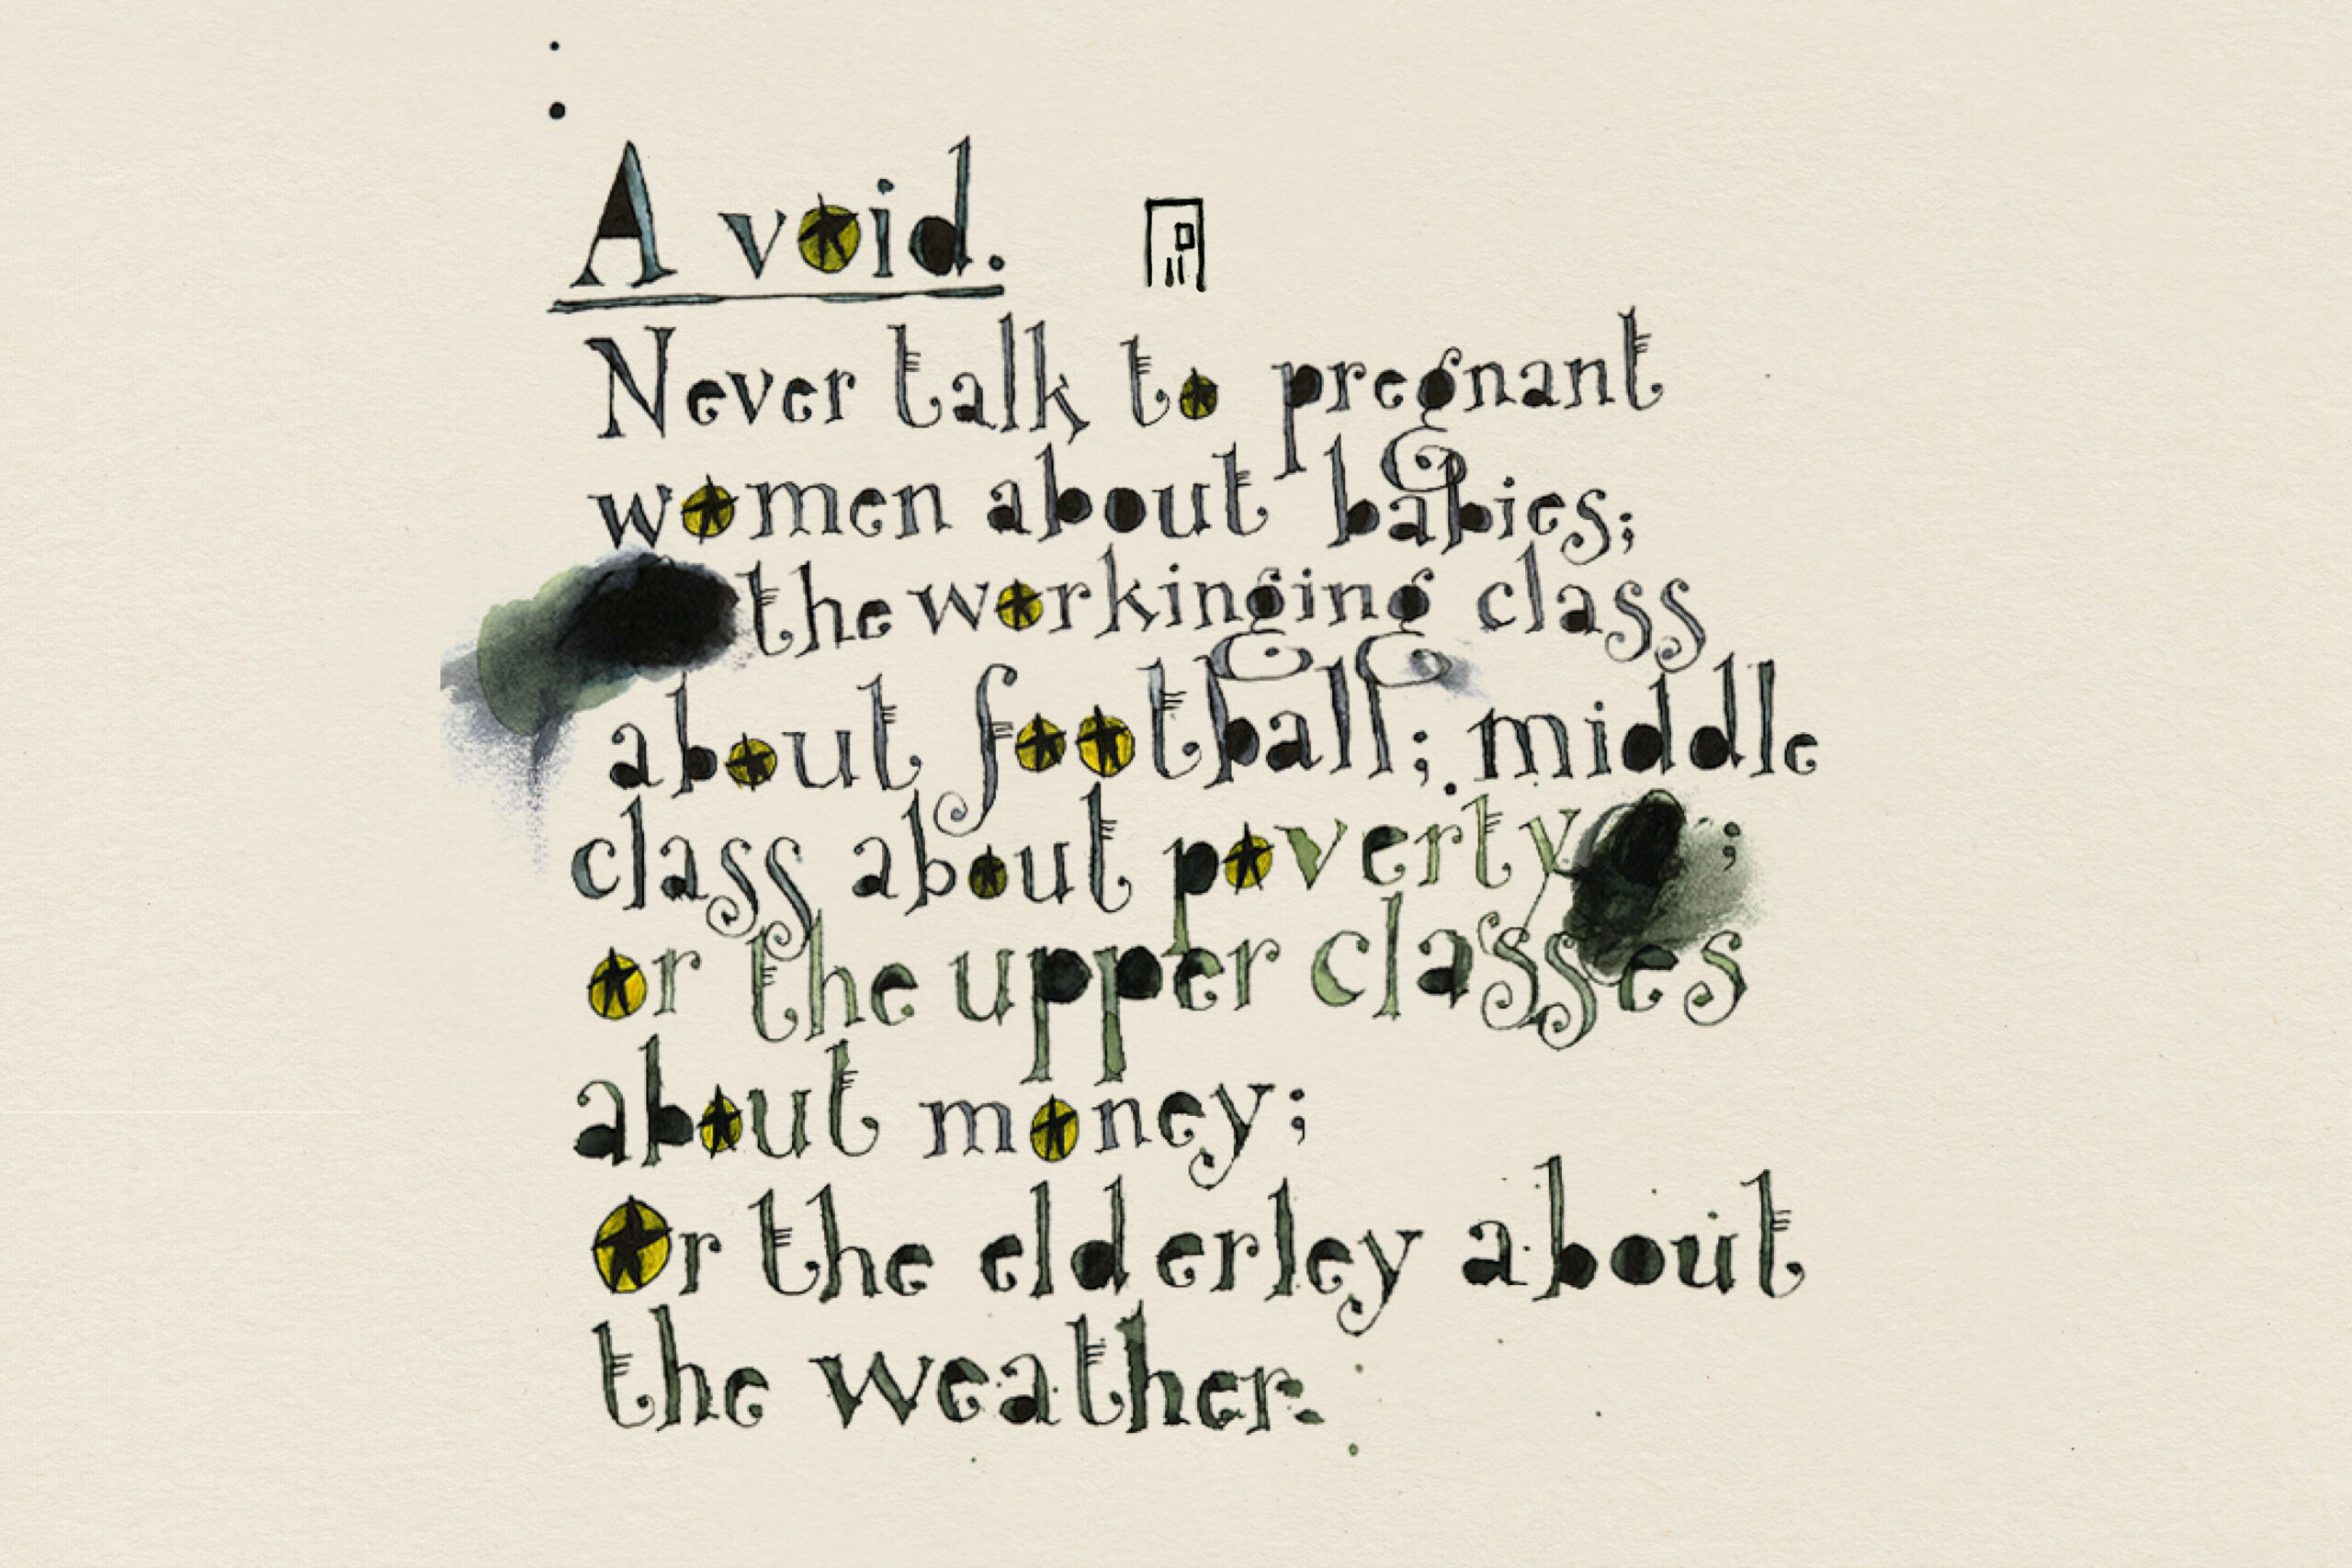 A void.
Never talk to pregnant
women about babies;
the workinging class
about football; middle
class about poverty ;
or the upper classes
about money;
Or the elderley about
the weather.